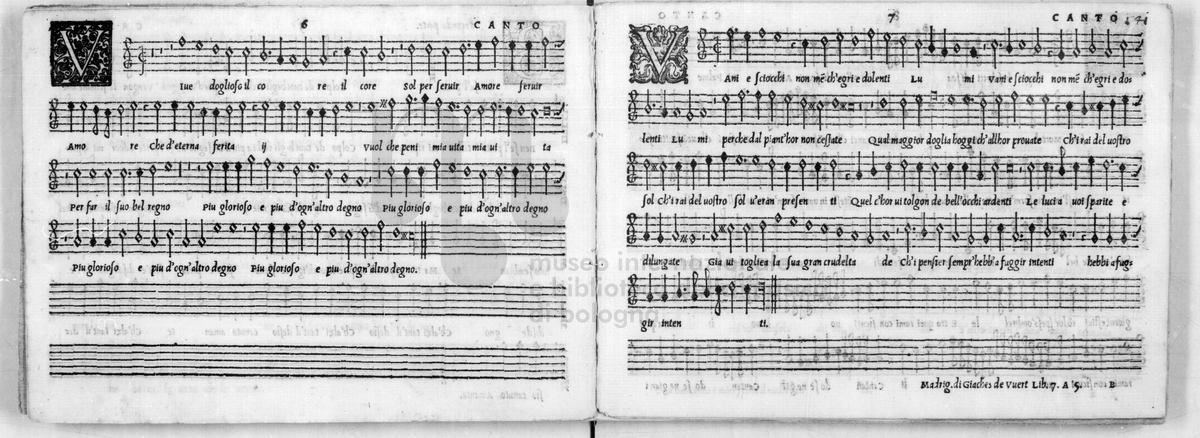 6
CANTO
V
Iue doglioso il co re il core Sol per seruir Amore seruir
Amo re Che d'eterna ferita ij Vuol che peni mia uita mia ui ta
Per far il suo bel regno Piu glorioso e piu d'ogn'altro degno Piu glorioso e piu d'ogn'altro degno
Piu glorioso e piu d'ogn'altro degno Piu glorioso e piu d'ogn'altro degno.
7
CANTO
V
Ani e sciocchi non mẽ ch'egri e dolenti Lu mi Vani e sciocchi non mẽ ch'egri e do
lenti Lu mi perche dal piant'hor non cessate Qual maggior doglia hoggi ch'allhor prouate Ch'i rai del uostro
sol Ch'i rai del uostro sol u'eran presen ti Quel c'hor ui tolgon de bell'occhi ardenti Le luci a uoi sparite e
dilungate Gia ui togliea la sua gran crudelta de Ch'i pensier sempr'hebb'a fuggir intenti hebbi a fug
gir inten ti.
Madrig. di Giaches de Vuert Lib. 7. A 5. B
museo internazionale
e biblioteca della musica
di bologna